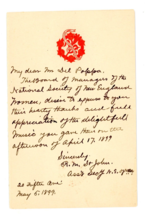 My dear Mr. Del Papa
The Board of Managers of the
National Society of New England
Women, desire to express to you
their hearty thanks and
appreciation of the delightful
Music you gave them on the
afternoon of April 17. 1899.
Sincerely
St. John.
20 Fifth Ave
May 6. 1899.